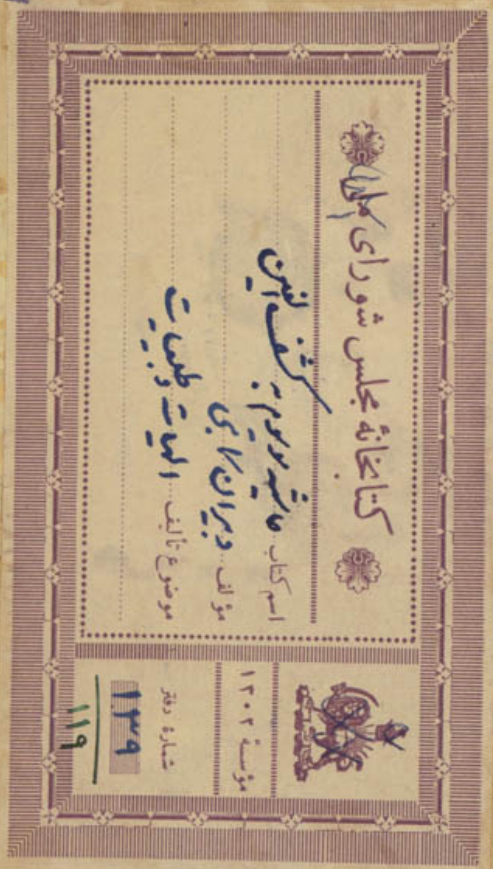 کتابخانهٔ مجلس شورای ملی
اسم کتاب حاشیه موسوم به کشف
مؤلف دبیران کاتبی
موضوع تألیف الهیات و طبیعیات
مؤسسهٔ ۱۳۰۲
شمارهٔ دفتر
۱۳۹
۱۱۹